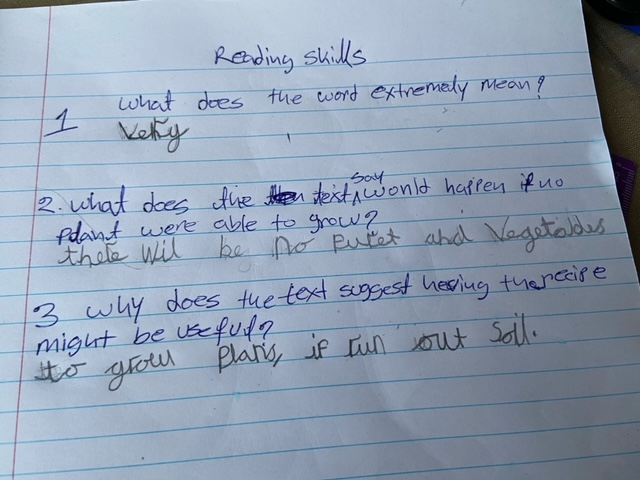 Reading skills
1 what does the word extremely mean?
Very
2. what does the text say would happen if no
plant were able to grow?
there Wil be no and Vegetables
3 why does the text suggest having the recipe
might be useful?
to grow plants, if run out Soil.